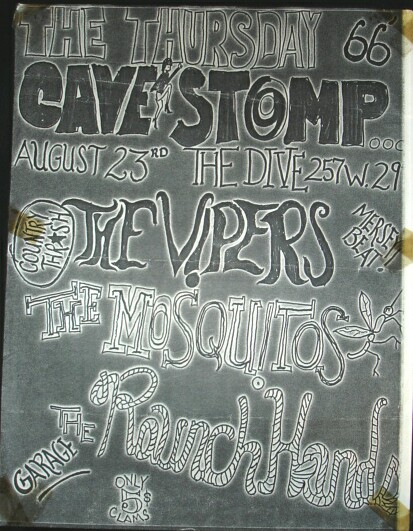 THE THURSDAY
66
CAVE STOMP...
AUGUST 23RD THE DIVE 257 W. 29
COUNTRY THRASH
THE VIPERS
MERSEY BEAT!
THE MOSQUITOS
THE RaunchHands
GARAGE
ONLY
CLAMS